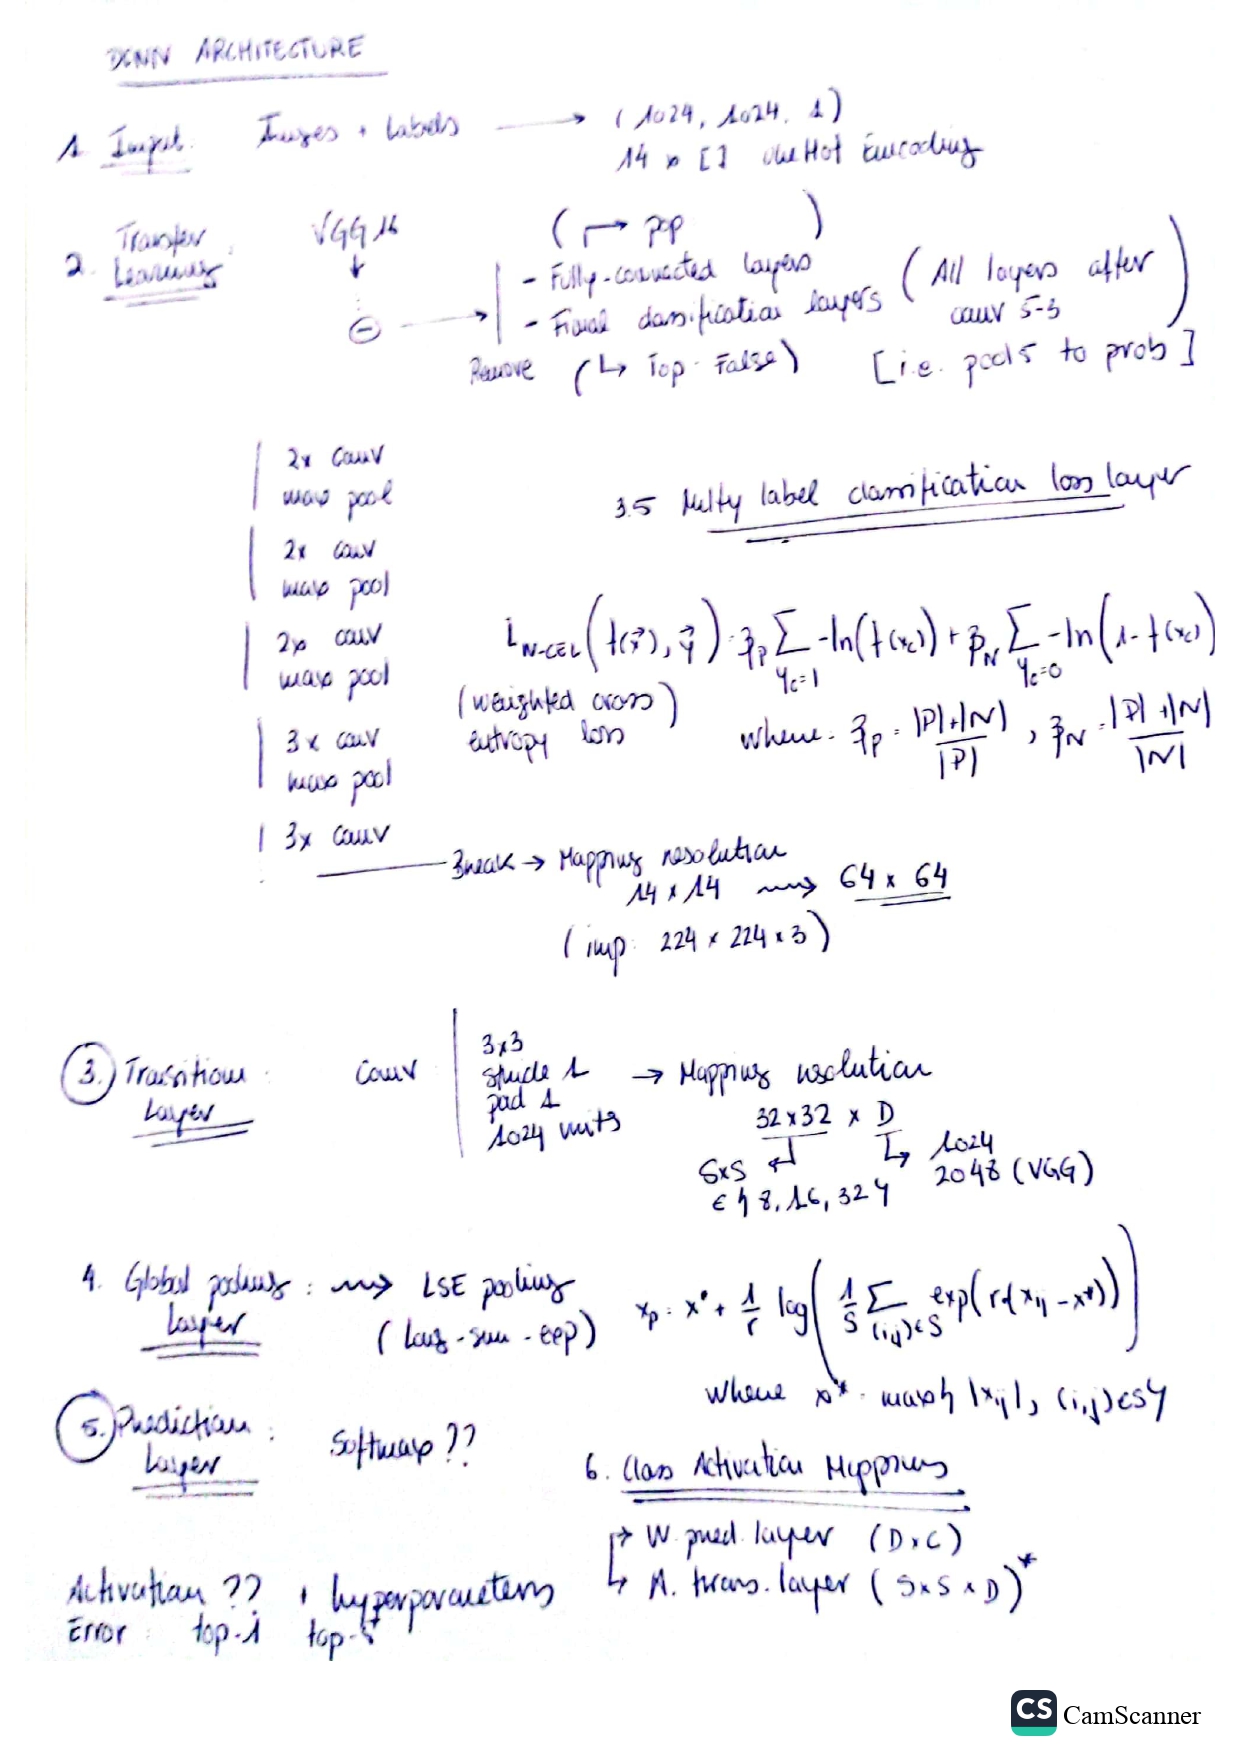 DCNN ARCHITECTURE
1. Input: Images + Labels → (1024, 1024, 1)
14 x [] One Hot Encoding
2. Transfer Learning: VGG16
(↱ pop )
- Fully-connected layers
- Final classification layers
(All layers after conv 5-3)
Remove (↳ Top-False) [i.e. pool5 to prob]
2x conv
max pool
2x conv
max pool
2x conv
max pool
3x conv
max pool
3x conv
3.5 Multy label classification loss layer
L_W-CEL (f(x⃗), y⃗) = β_P Σ_{y_c=1} -ln(f(x_c)) + β_N Σ_{y_c=0} -ln(1-f(x_c))
(weighted cross entropy loss)
where: β_P = |P|+|N| / |P| , β_N = |P|+|N| / |N|
Break → Mapping resolution
14 x 14 ⇝ 64 x 64
(inp: 224 x 224 x 3)
3. Transition Layer: Conv
3x3
stride 1
pad 1
1024 units
→ Mapping resolution
32x32 x D
SxS ∈ {8, 16, 32}
1024
2048 (VGG)
4. Global pooling layer: ⇝ LSE pooling
(log-sum-exp)
x_p = x* + 1/r log( 1/S Σ_{(i,j)∈S} exp(r·(x_ij - x*)) )
where x* = max{|x_ij|, (i,j)∈S}
5. Prediction Layer: Softmax??
6. Class Activation Mapping
→ W. pred. layer (D x C)
↳ A. trans. layer (S x S x D)*
Activation ?? + hyperparameters
Error: top-1 top-5
CS CamScanner